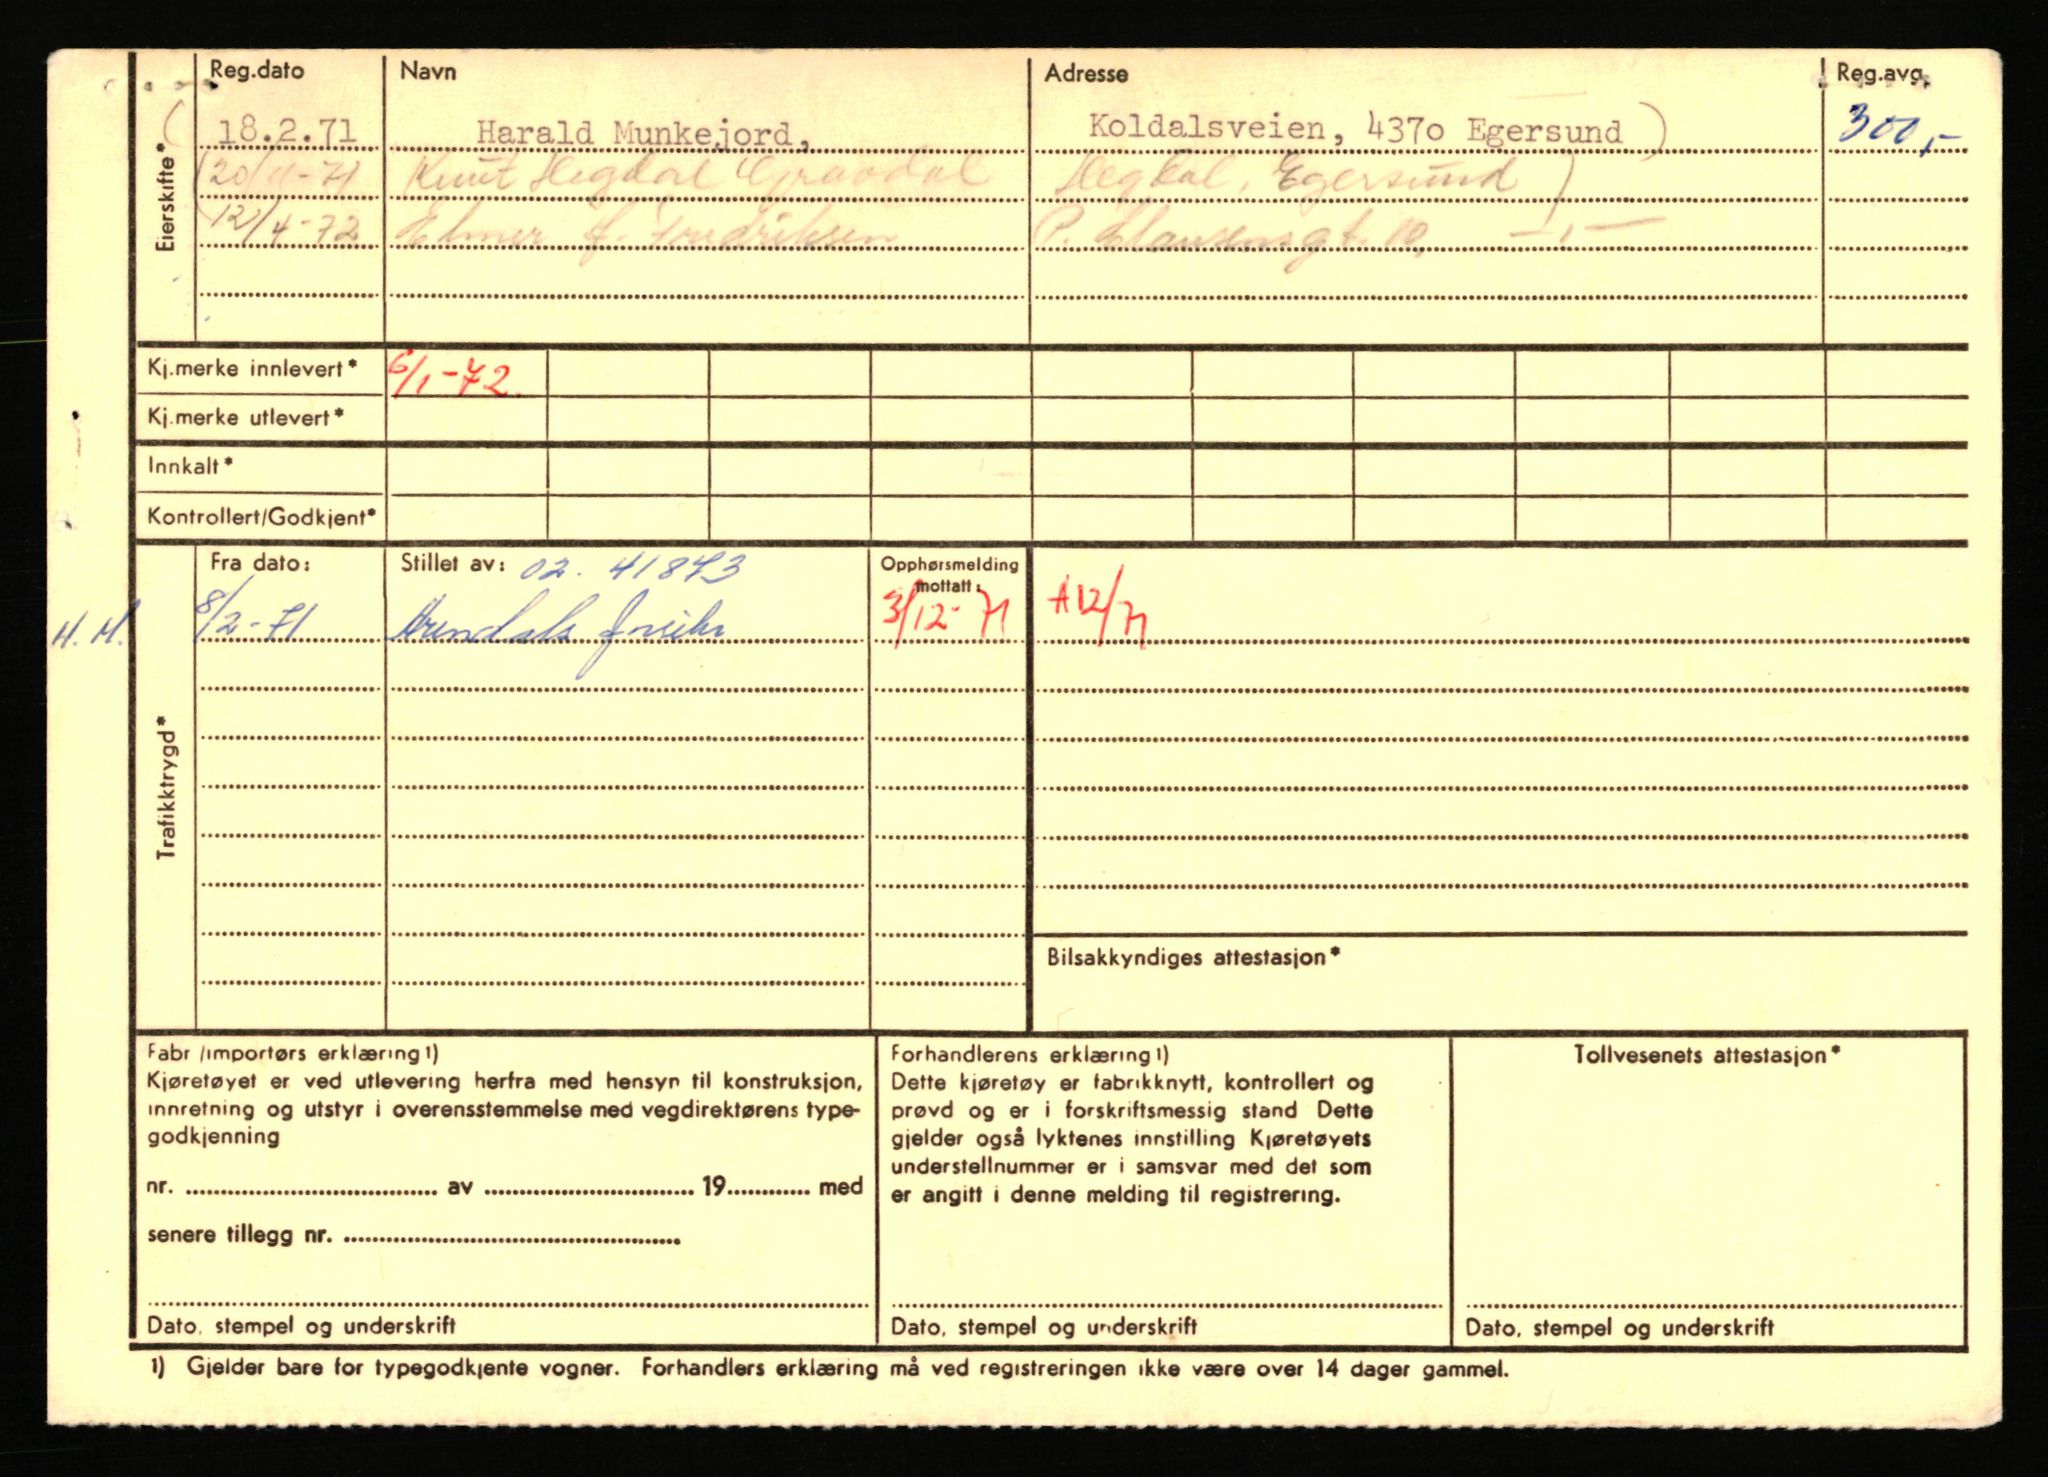 Reg.dato Navn Adresse Reg.avg.
Eierskifte*
(18.2.71 Harald Munkejord, Koldalsveien, 4370 Egersund) 300,-
(20/11-71 Knut Hegdal Gravdal Hegdal, Egersund)
(12/4-72 Elmer A. Fredriksen P. Clausensgt. 10, -,-
Kj.merke innlevert* 6/1-72.
Kj.merke utlevert*
Innkalt*
Kontrollert/Godkjent*
Trafikktrygd*
Fra dato: Stillet av: 02. 41873 Opphørsmelding mottatt:
H.M. 8/2-71 Arendals 3/12-71 A12/71
Bilsakkyndiges attestasjon*
Fabr /importørs erklæring 1)
Kjøretøyet er ved utlevering herfra med hensyn til konstruksjon,
innretning og utstyr i overensstemmelse med vegdirektørens type-
godkjenning
nr. .......... av .......... 19.......... med
senere tillegg nr. ..........
Dato, stempel og underskrift
Forhandlerens erklæring 1)
Dette kjøretøy er fabrikknytt, kontrollert og
prøvd og er i forskriftsmessig stand Dette
gjelder også lyktenes innstilling Kjøretøyets
understellnummer er i samsvar med det som
er angitt i denne melding til registrering.
Dato, stempel og underskrift
Tollvesenets attestasjon*
Dato, stempel og underskrift
1) Gjelder bare for typegodkjente vogner. Forhandlers erklæring må ved registreringen ikke være over 14 dager gammel.